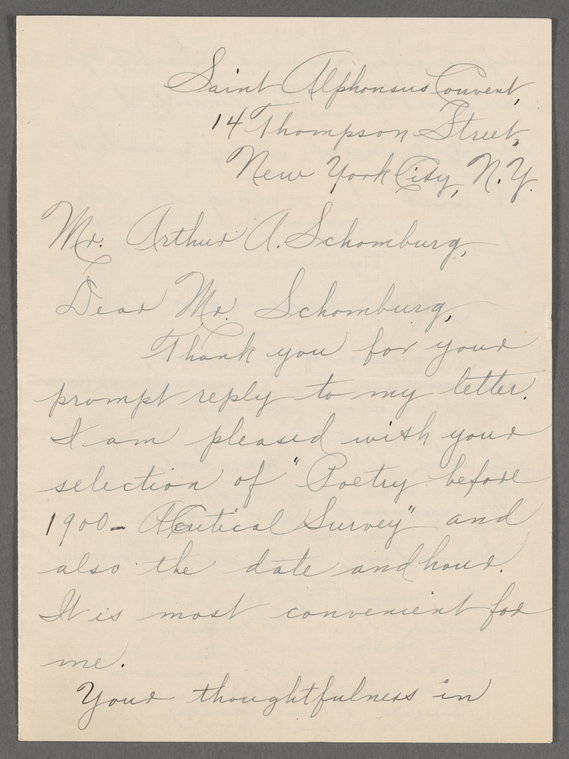 Saint Alphonsus Convent,
14 Thompson Street,
New York City, N.Y.
Mr. Arthur A. Schomburg,
Dear Mr. Schomburg,
Thank you for your
prompt reply to my letter.
I am pleased with your
selection of "Poetry before
1900 - A Critical Survey" and
also the date and hour.
It is most convenient for
me.
Your thoughtfulness in